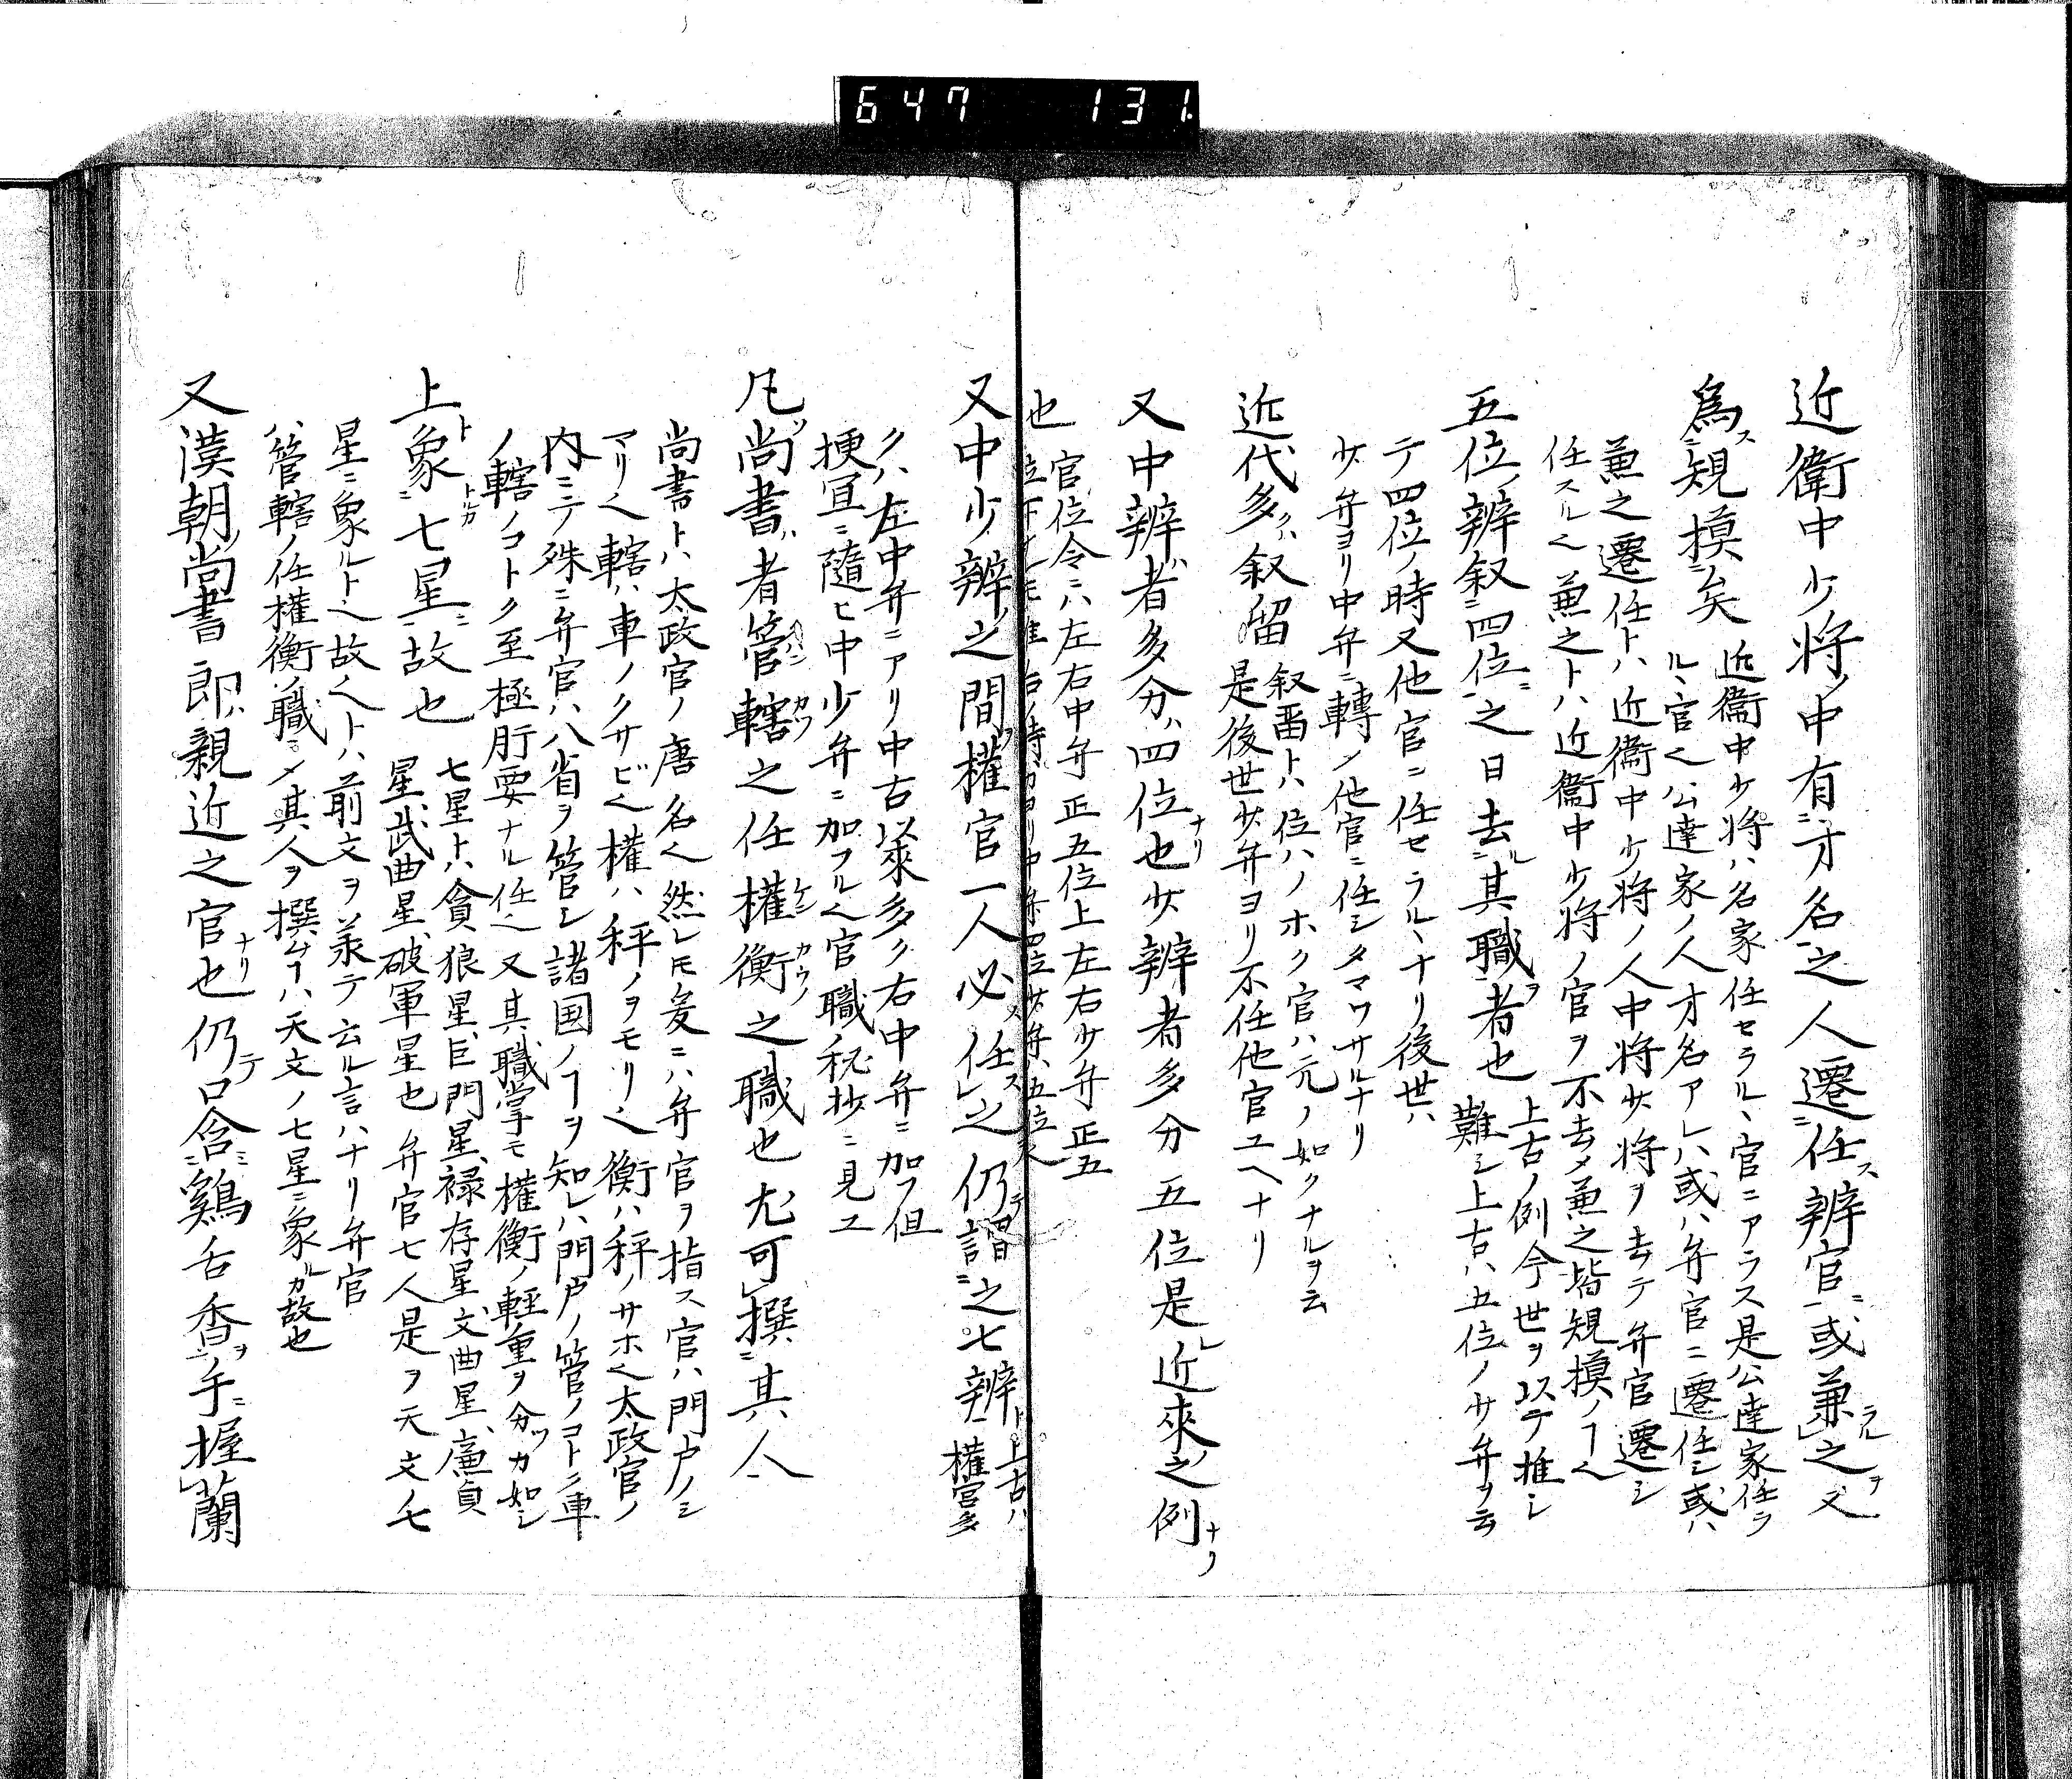 647 131
近衛中少将ノ中有ニ才名一之人遷ニ任ス辨官ニ一或兼ラルヽヲ之又
為ス規摸ニ矣 近衞中少将ハ名家任セラルヽ官ニアラス是公達家任ラ
ルヽ官也公達家ノ人才名アレハ或ハ弁官ニ遷任シ或ハ
兼之遷任トハ近衞中少将ノ人中将少将ヲ去テ弁官遷シ
任スル也兼之トハ近衞中少将ノ官ヲ不去〆兼之皆規摸ノ𪜈也
五位ノ辨叙ニ四位ニ一之日去ルニ其職ヲ一者也 上古ノ例今世ヲ以テ推シ
難シ上古ハ五位ノ少弁ヲ云
テ四位ノ時又他官ニ任セラルヽナリ後世ハ
少弁ヨリ中弁ニ轉〆他官ニ任シタマワサルナリ
近代多クハ叙留 叙畱トハ位ハノホク官ハ元ノ如クナルヲ云
是後世少弁ヨリ不任他官ユヘナリ
又中辨ハ者多分ハ四位也ナリ少辨者多分五位是レ近來之例ナリ
也 官位令ニハ左右中弁正五位上左右少弁正五
位下
又中少辨ノ之間ヲ權官一人必ス任スレ之仍テ謂ニ之七辨ト一 上古ハ
權官多
クハ左中弁ニアリ中古以來多ク右中弁ニ加フ但
揀宣ニ隨ヒ中少弁ニ加フル也官職ノ秘抄ニ見ユ
凡ソ尚書ハ者管轄カツ之任權ケン衡カウノ之職也尤可レ撰ニ其人一
尚書トハ太政官ノ唐名也然レ𪜈爰ニハ弁官ヲ指ス官ハ門戸ノシ
マリ也轄ハ車ノクサビ也權ハ秤ノヲモリ也衡ハ秤ノサホ也太政官ノ
内ニテ殊ニ弁官ハ八省ヲ管シ諸国ノ𪜈ヲ知レハ門戸ノ管ノコトク車
ノ轄ノコトク至極肝要ナル任也又其職掌モ權衡ノ輕重ヲ分ツカ如シ
上ト象トルカニ七星ニ一故也 七星トハ貪狼星、巨門星、禄存星、文曲星、廉貞
星、武曲星、破軍星也弁官七人是ヲ天文ノ七
星ニ象ルト也故也トハ前文ヲ羕テ云ル言ハナリ弁官
ハ管轄ノ任權衡ノ職ニ〆其人ヲ撰ム𪜈ハ天文ノ七星ニ象ルカ故也
又漢朝ノ尚書郎ハ親近之官也ナリ仍テ口含ミニ鷄舌香ヲ一手ニ握レ蘭